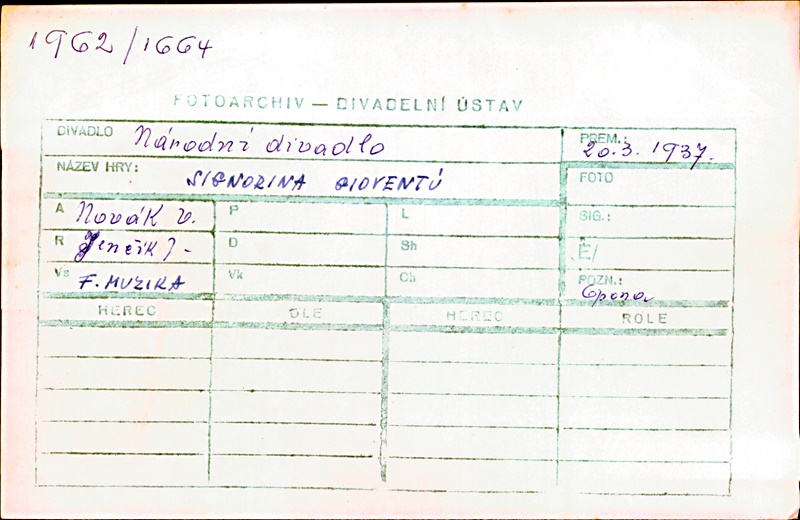 1962/1664
FOTOARCHIV — DIVADELNÍ ÚSTAV
DIVADLO Národní divadlo PREM.: 20.3. 1937.
NÁZEV HRY: SIGNORINA GIOVENTÚ FOTO
A Novák V. P L SIG.:
R Jenčík J- D Sh Ě/
Vs F. MUZIKA Vk Ch POZN.: Opona
HEREC OLE HEREC ROLE